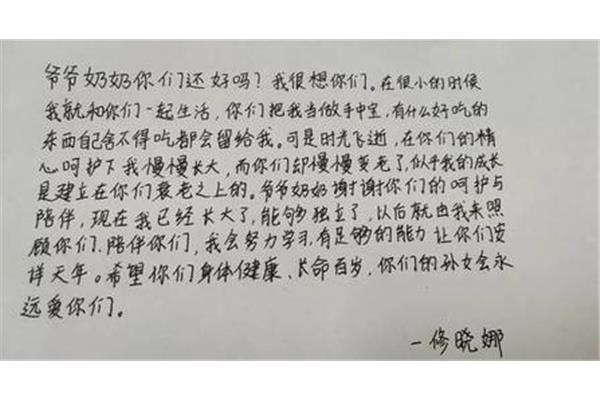 爷爷奶奶你们还好吗？我很想你们。在很小的时候
我就和你们一起生活，你们把我当做手中宝，有什么好吃的
东西自己舍不得吃都会留给我。可是时光飞逝，在你们的精
心呵护下我慢慢长大，而你们却慢慢变老了，似乎我的成长
是建立在你们衰老之上的。爷爷奶奶谢谢你们的呵护与
陪伴，现在我已经长大了，能够独立了，以后就由我来照
顾你们、陪伴你们，我会努力学习，有足够的能力让你们安
详天年。希望你们身体健康、长命百岁，你们的孙女会永
远爱你们。
—修晓娜